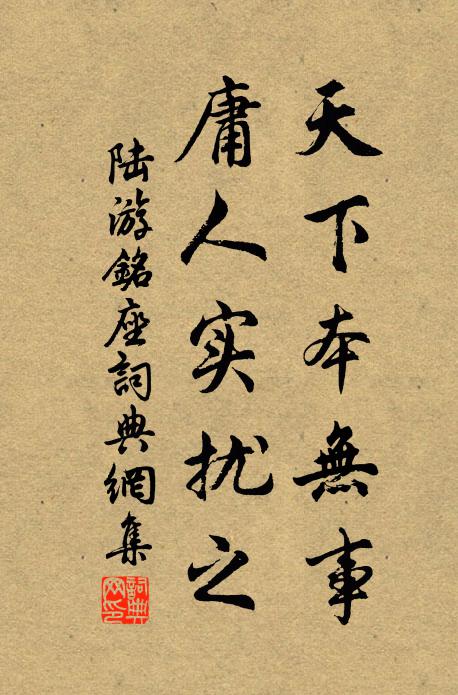 天下本無事
庸人实扰之
陆游銘座詞典網集
詞典网印